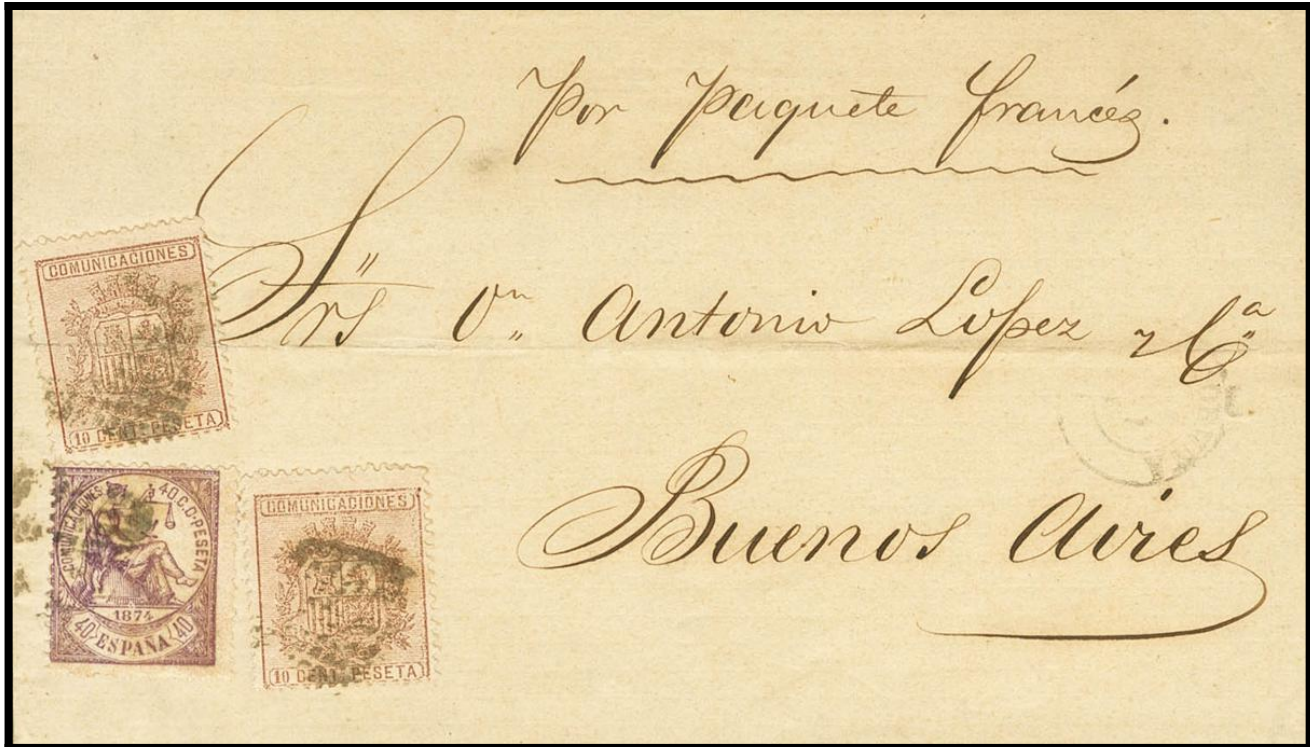 Por Paquete francés.
Srs Dn Antonio Lopez y Ca
Buenos Aires
COMUNICACIONES
10 CENT. PESETA
COMUNICACIONES 40 C. D PESETA
1874
40 ESPAÑA 40
COMUNICACIONES
10 CENT. PESETA